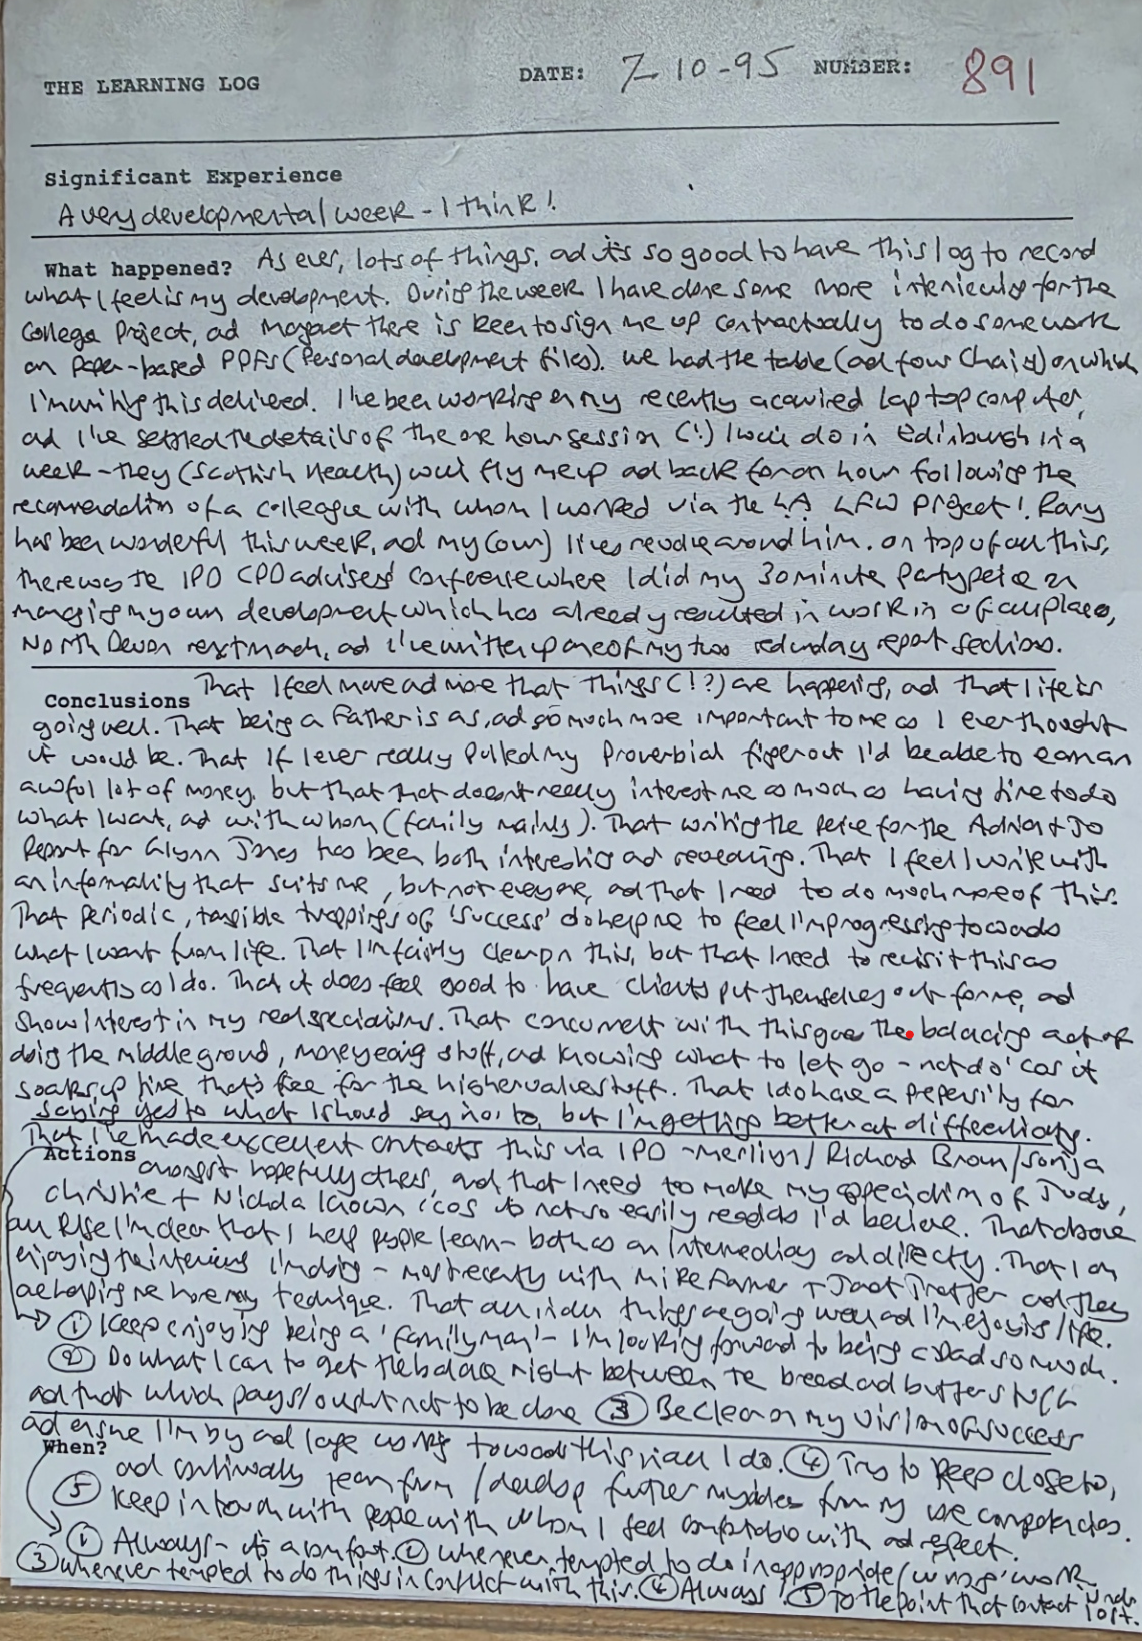 THE LEARNING LOG DATE: 7-10-95 NUMBER: 891
Significant Experience
A very developmental week - I think!
What happened? As ever, lots of things, ad it's so good to have this log to record
what I feel is my development. During the week I have done some more interviewing for the
College Project, ad Margaret there is keen to sign me up contractually to do some work
on paper-based PDFs (Personal development files). We had the table (ad four chairs) on which
I'm writing this delivered. I've been working on my recently acquired laptop computer,
ad I've settled the details of the one hour session (!) I will do in Edinburgh in a
week - they (Scottish Health) will fly me up ad back for an hour following the
recommendation of a colleague with whom I worked via the LA LFW project! Rory
has been wonderful this week, ad my (our) lives revolve around him. On top of all this,
there was the IPD CPD advisers' conference where I did my 30 minute party piece on
managing my own development which has already resulted in work in of all places,
North Devon next month, ad I've written up one of my two redundancy report sections.
Conclusions That I feel more ad more that things (!?) are happening, ad that life is
going well. That being a Father is as, ad so much more important to me as I ever thought
it would be. That if I ever really pulled my proverbial finger out I'd be able to earn an
awful lot of money, but that that doesn't really interest me as much as having time to do
what I want, ad with whom (family mainly). That writing the piece for the Adrian & Jo
Report for Glynn Jones has been both interesting ad revealing. That I feel I write with
an informality that suits me, but not everyone, ad that I need to do much more of this.
That periodic, tangible trappings of 'success' do help me to feel I'm progressing towards
what I want from life. That I'm fairly clear on this, but that I need to revisit this as
frequently as I do. That it does feel good to have clients put themselves out for me, ad
show interest in my real specialisms. That concurrent with this goes the balancing act of
doing the middle ground, money earning stuff, ad knowing what to let go - not do 'cos it
soaks up time that's free for the higher value stuff. That I do have a propensity for
saying yes to what I should say no to, but I'm getting better at differentiating.
That I've made excellent contacts this via IPD - Merlyn / Richard Brown / Sonja
Actions amongst hopefully others, and that I need to make my appreciation of Judy,
Christie + Nichola known 'cos its not so easily read as I'd believe. That above
all else I'm clear that I help people learn - both as an intermediary ad directly. That I am
enjoying the interviews I'm doing - most recently with Mike Farmer + Janet Tratter ad they
are helping me hone my technique. That all in all things are going well ad I'm enjoying life.
① Keep enjoying being a 'family man' - I'm looking forward to being a Dad so much.
② Do what I can to get the balance right between the bread ad butter stuff
ad that which pays/ought not to be done ③ Be clear on my vision of success
ad ensure I'm by ad large working towards this in all I do. ④ Try to keep close to,
When? ad continually learn from / develop further myddes from my use competencies.
⑤ Keep in touch with people with whom I feel comfortable with ad respect.
① Always - it's a comfort. ② Whenever tempted to do inappropriate/'wrong' work
③ Whenever tempted to do things in conflict with this. ④ Always! ⑤ To the point that contact isn't lost.